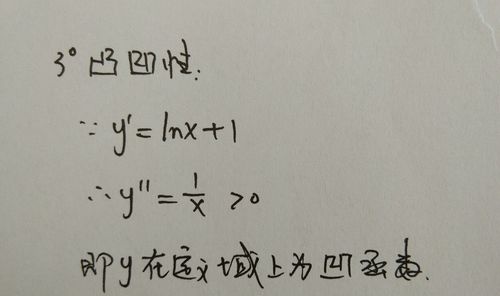 3° 凸凹性.
∵ y' = lnx+1
∴ y" = 1/x >0
即y在定义域上为凹函数.